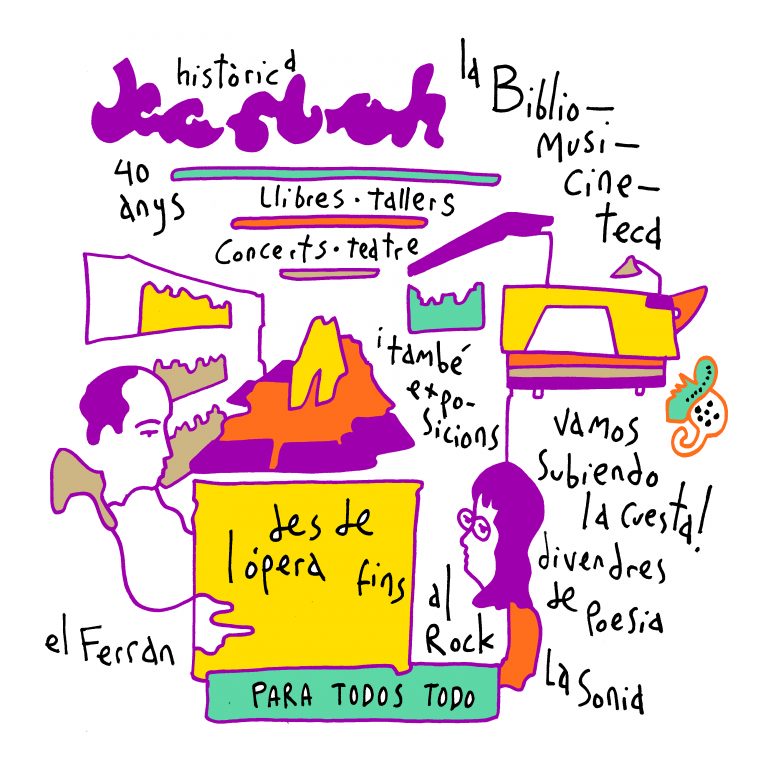 històrica
40
anys
Llibres · tallers
Concerts · teatre
la
Biblio–
musi–
cine–
teca
i també
expo-
sicions
vamos
subiendo
la cuesta!
des de
l'òpera fins
al
Rock
divendres
de poesia
el Ferran
la Sonia
PARA TODOS TODO